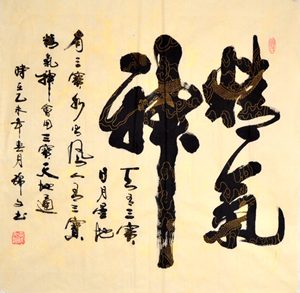 精氣
神
天有三寶
日月星地
有三寶水火風人有三寶
精氣神會用三寶天地通
時在乙未年春月